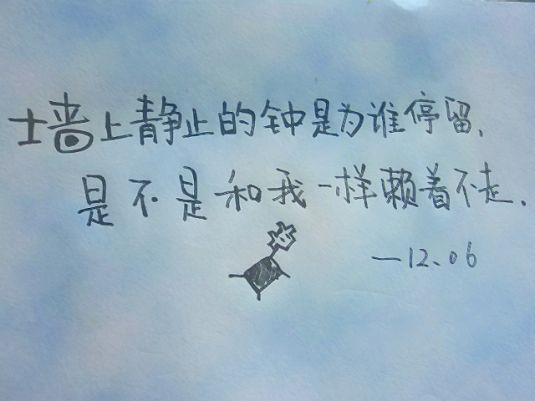 墙上静止的钟是为谁停留、
是不是和我一样赖着不走.
—12.06